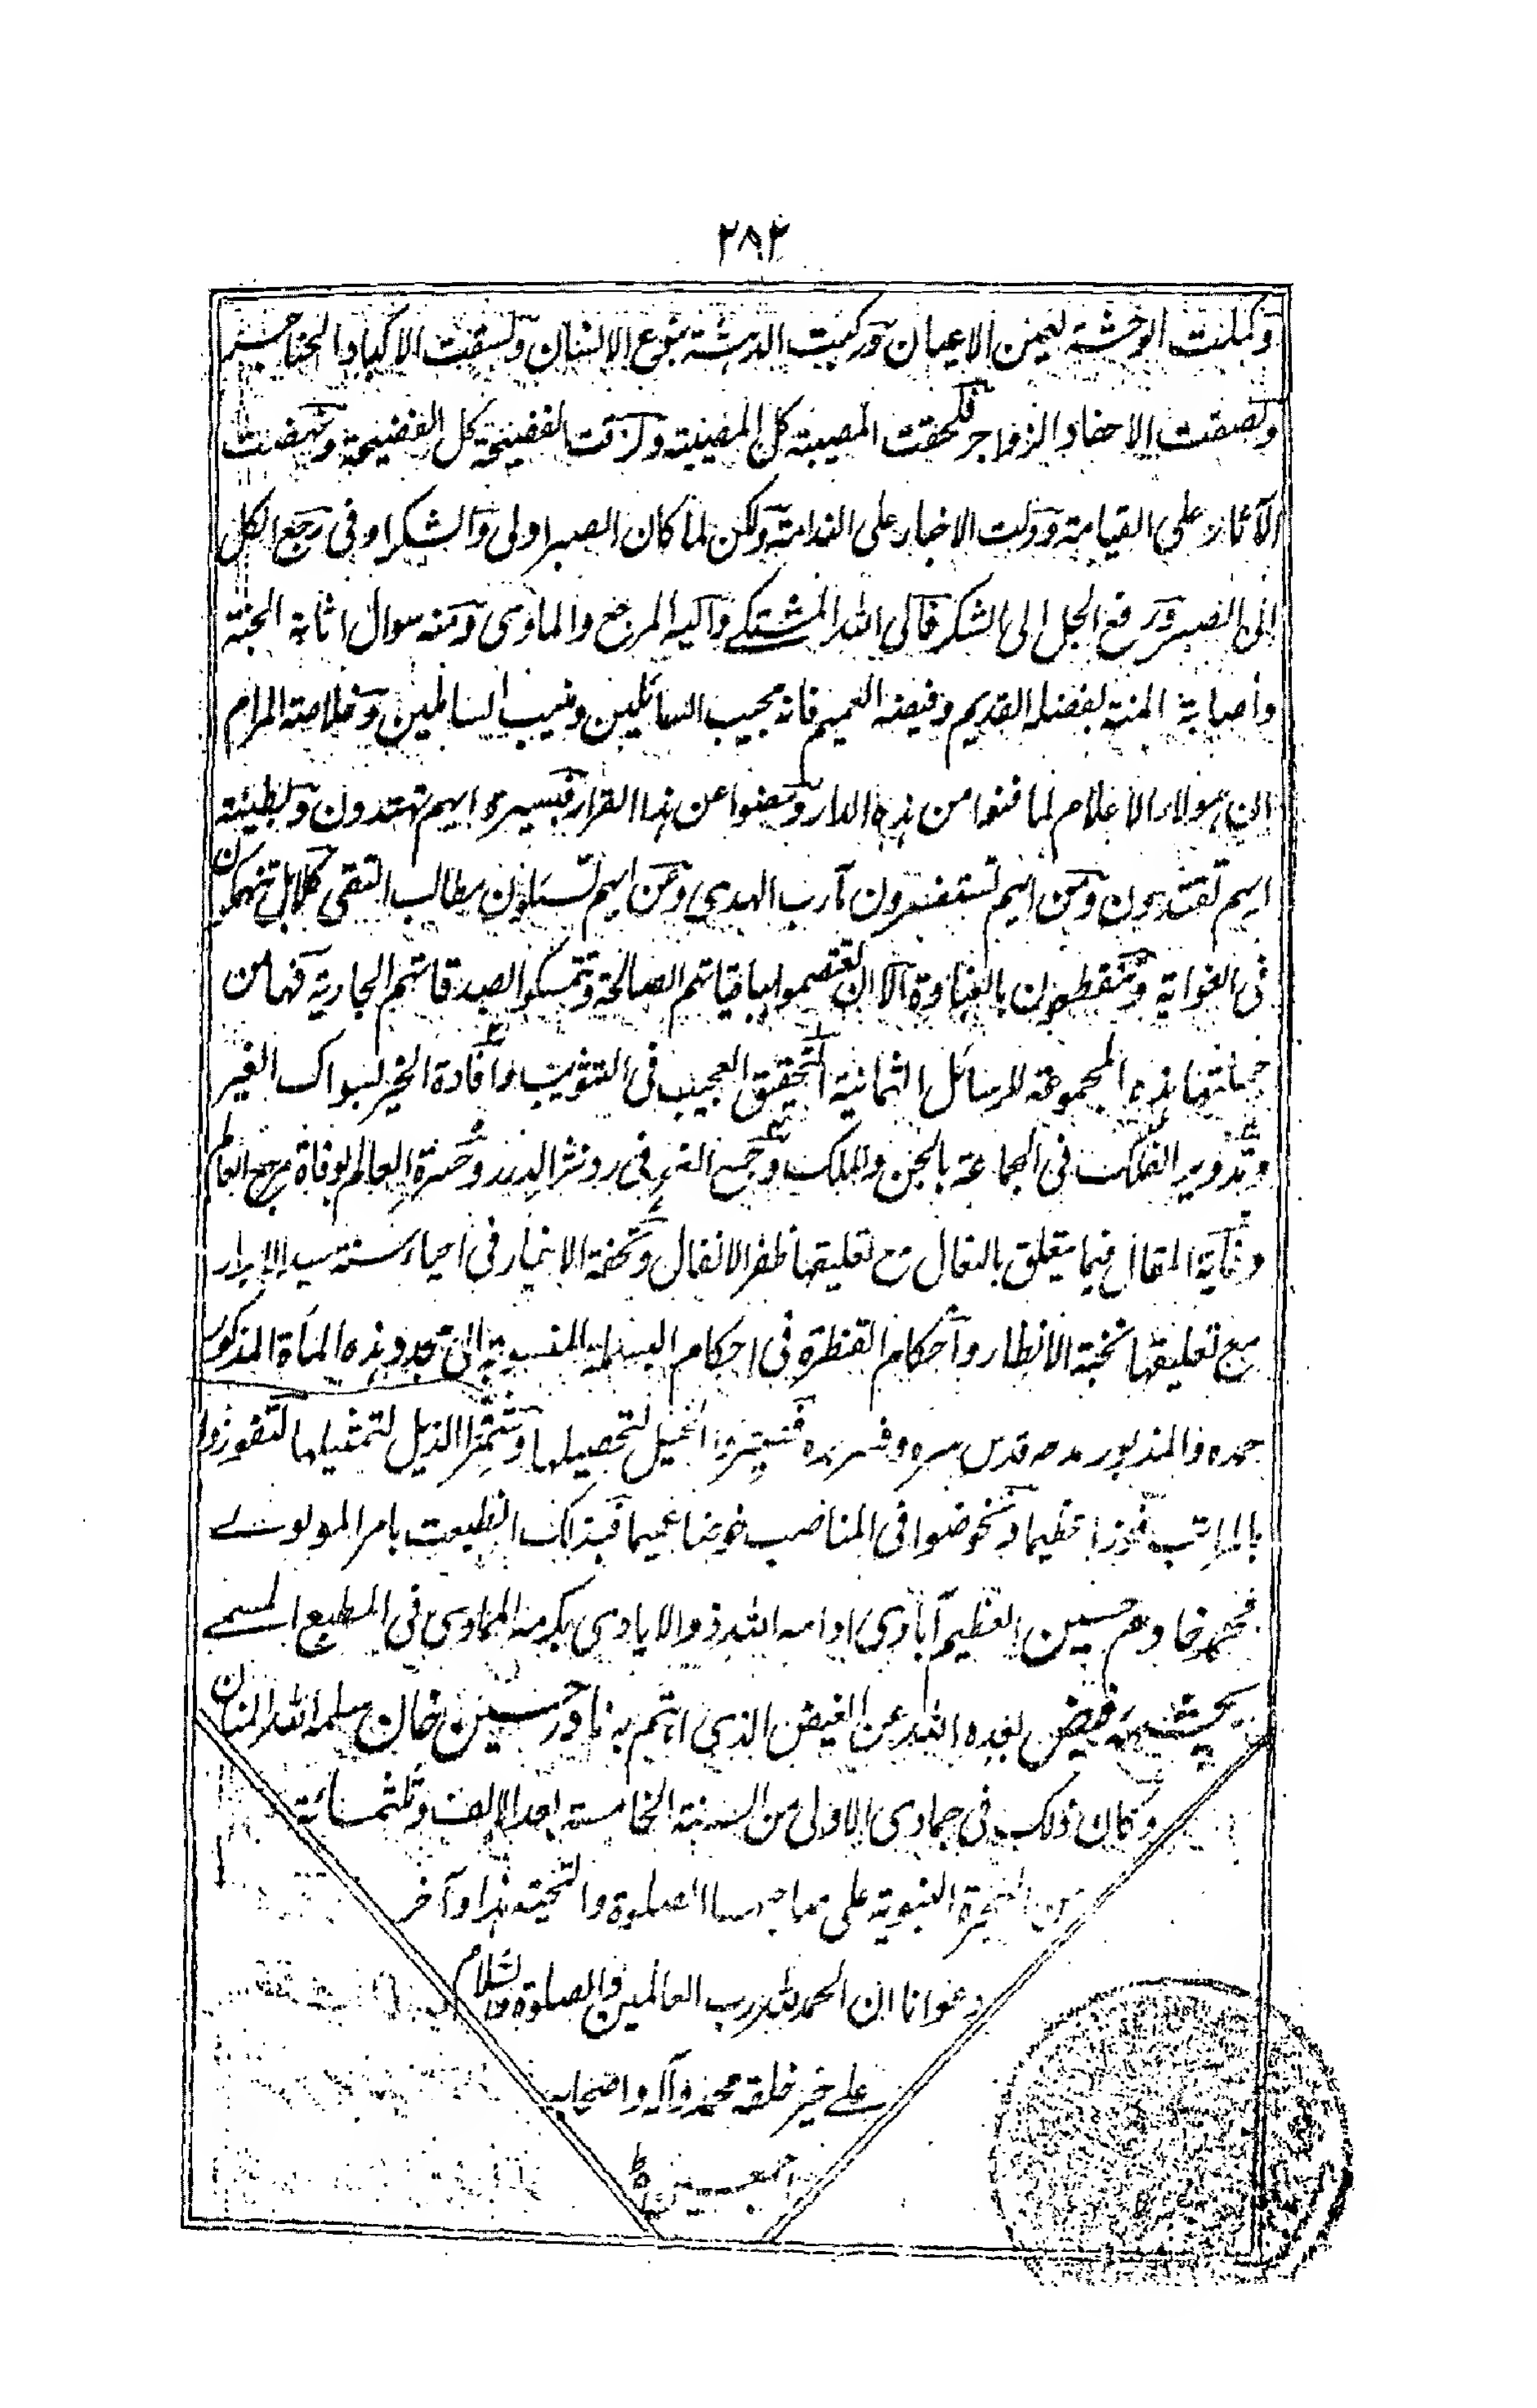 ٢٨٢
وكملت الوحشة ليمن الاعيان وركبت الدهشة بنوع الانسان ولسقت الاكباد الحناجر
ولصقت الاحفاد الزواجر فلحقت المصيبة كل المصيبة ولزقت الفضيحة كل الفضيحة ونهضت
الآثار على القيامة ودلت الاخبار على الندامة ولكن لما كان الصبر اولى والشكر اوفى رجع الكل
الى الصبر ورفع الجل الى الشكر فالى الله المشتكى واليه المرجع والماوى ومنه سوال اثابة الجنة
واصابة المنة بفضله القديم وفيضه العميم فانه مجيب السائلين ومنيب السالمين وخلاصة المرام
ان هولاء الاعلام لما فنوا من هذه الدار ومضوا عن هذا القرار فبسيرة ايهم تهتدون وبطيئة
ايهم تقتدون ومن ايهم تستفسرون مآرب الهدى وعن ايهم تسئلون مطالب التقى كلا بل تنهمكون
فى الغواية وتنقطعون بالغباوة الا ان تعتصموا بباقياتهم الصالحة وتتمسكوا بصدقاتهم الجارية فها من
جملتها هذه المجموعة للرسائل الثمانية التحقيق العجيب فى التثويب وافادة الخير بسواك الغير
وتدوير الفلك فى الجماعة بالجن والملك وجمع الغرر فى رد نثر الدرر وحسرة العالم بوفاة مرجع العالم
وغاية المقال فيما يتعلق بالنعال مع تعليقها ظفر الانفال وتحفة الاخيار فى احياء سنة سيد الابرار
مع تعليقها نخبة الانظار واحكام القنطرة فى احكام البسملة المنسوبة الى مجدد هذه المأة المذكور
حمده والمذبور مدحه قدس سره وفسر بره فسيروا الخيل لتحصيلها وشمروا الذيل لتمثيلها لتفوزوا
بالمراتب فوزا عظيما وتخوضوا فى المناصب خوضا عميما فبذاك انطبعت بامر المولوى
محمد خادم حسين العظيم آبادى ادامه الله ذو الايادى بكرمه المادى فى المطبع المسمى
بچشمهٔ فيض بعده الله عن الغيض الذى اهتم به نادر حسين خان سلمه الله المنان
وكان ذلك فى جمادى الاولى من السنة الخامسة بعد الالف وثلثمائة
من الهجرة النبوية على صاحبها الصلوة والتحية هذا وآخر
دعوانا ان الحمد لله رب العالمين والصلوة والسلام
على خير خلقه محمد وآله واصحابه
اجمعين